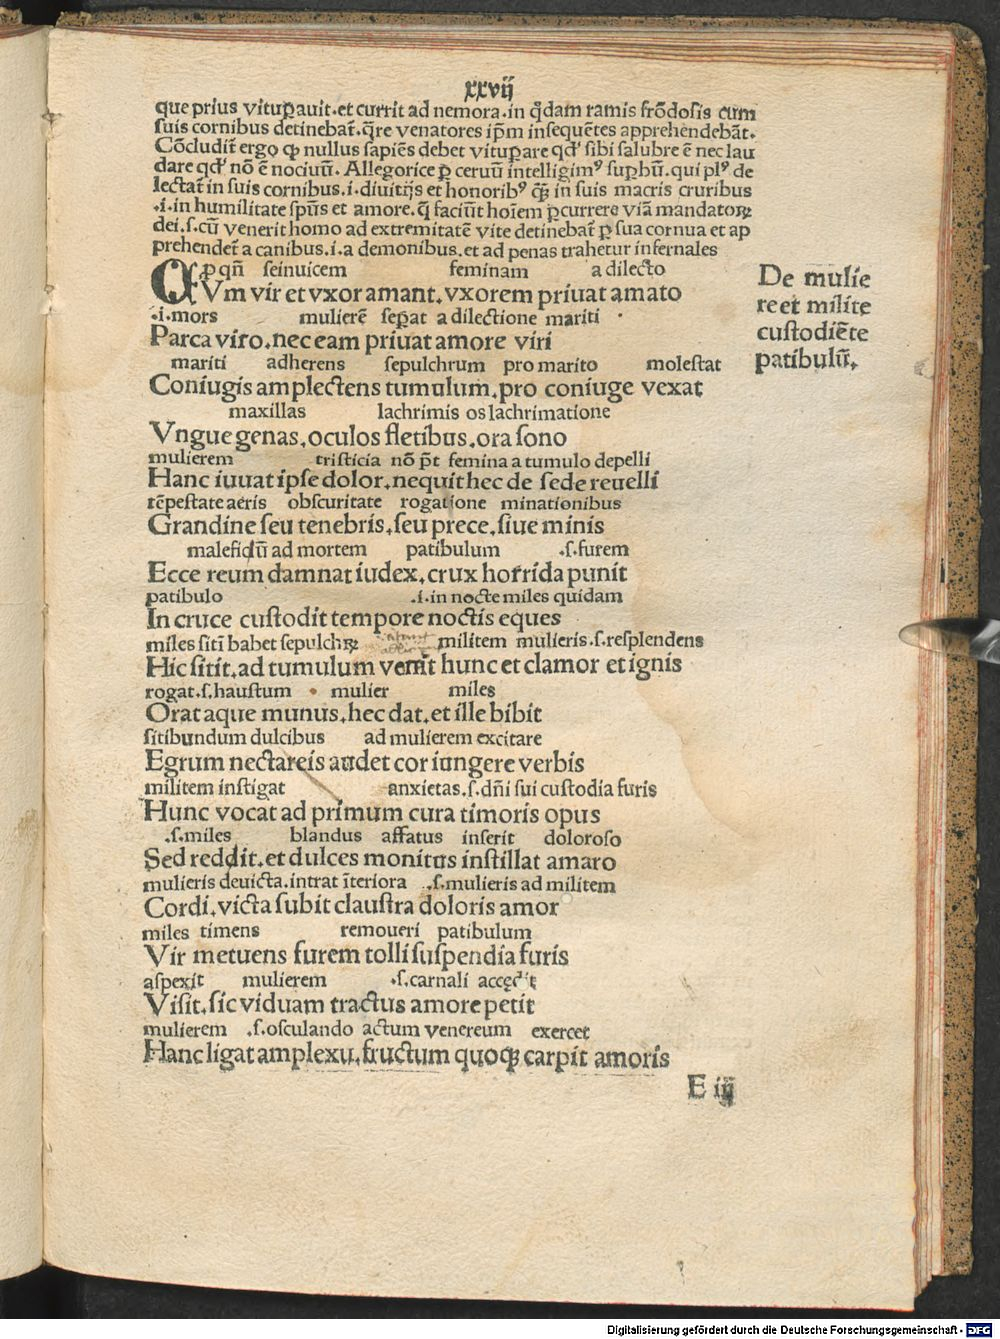 xxvij
que prius vituꝑauit.et currit ad nemora.in qdam ramis frōdosis cum
suis cornibus detinebat̄.q̄re venatores ip̄m insequētes apprehendebāt.
Cōcludit̄ ergo ꝙ nullus sapiēs debet vituꝑare qd' sibi salubre ē nec lau
dare qd' nō ē nociuū. Allegorice ꝑ ceruū intelligimꝰ suꝑbū.qui plꝰ de
lectat̄ in suis cornibus.i.diuitijs et honoribꝰ qꝫ in suis macris cruribus
.i.in humilitate sp̄us et amore.q̄ faciūt hoīem ꝑcurrere viā mandatoꝝ
dei.s.cū venerit homo ad extremitatē vite detinebat̄ ꝑ sua cornua et ap
prehendet̄ a canibus.i.a demonibus.et ad penas trahetur infernales
.s.ꝑ qn̄ seinuicem feminam a dilecto
CVm vir et vxor amant.vxorem priuat amato
De mulie
re et milite
custodiēte
patibulū.
.i.mors mulierē seꝑat a dilectione mariti
Parca viro.nec eam priuat amore viri
mariti adherens sepulchrum pro marito molestat
Coniugis amplectens tumulum.pro coniuge vexat
maxillas lachrimis os lachrimatione
Vngue genas.oculos fletibus.ora sono
mulierem tristicia nō p̄t femina a tumulo depelli
Hanc iuuat ipse dolor.nequit hec de sede reuelli
tēpestate aeris obscuritate rogatione minationibus
Grandine seu tenebris.seu prece.siue minis
malefiqū ad mortem patibulum .s.furem
Ecce reum damnat iudex.crux horrida punit
patibulo .i.in nocte miles quidam
In cruce custodit tempore noctis eques
miles sitī habet sepulchꝝ militem mulieris.s.resplendens
Hic sitit.ad tumulum venit hunc et clamor et ignis
rogat.s.haustum mulier miles
Orat aque munus.hec dat.et ille bibit
sitibundum dulcibus ad mulierem excitare
Egrum nectareis audet cor iungere verbis
militem instigat anxietas.s.dn̄i sui custodia furis
Hunc vocat ad primum cura timoris opus
.s.miles blandus affatus inserit doloroso
Sed reddit.et dulces monitus instillat amaro
mulieris deuicta.intrat īteriora .s.mulieris ad militem
Cordi.victa subit claustra doloris amor
miles timens remoueri patibulum
Vir metuens furem tolli suspendia furis
aspexit mulierem .s.carnali accedit
Visit.sic viduam tractus amore petit
mulierem .s.osculando actum venereum exercet
Hanc ligat amplexu.fructum quoqꝫ carpit amoris
E iij
Digitalisierung gefördert durch die Deutsche Forschungsgemeinschaft - DFG